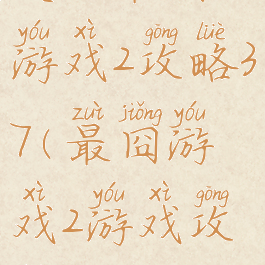 yóu xì gōng lüè
游戏2攻略3
zuì jiǒng yóu
7(最囧游
xì yóu xì gōng
戏2游戏攻